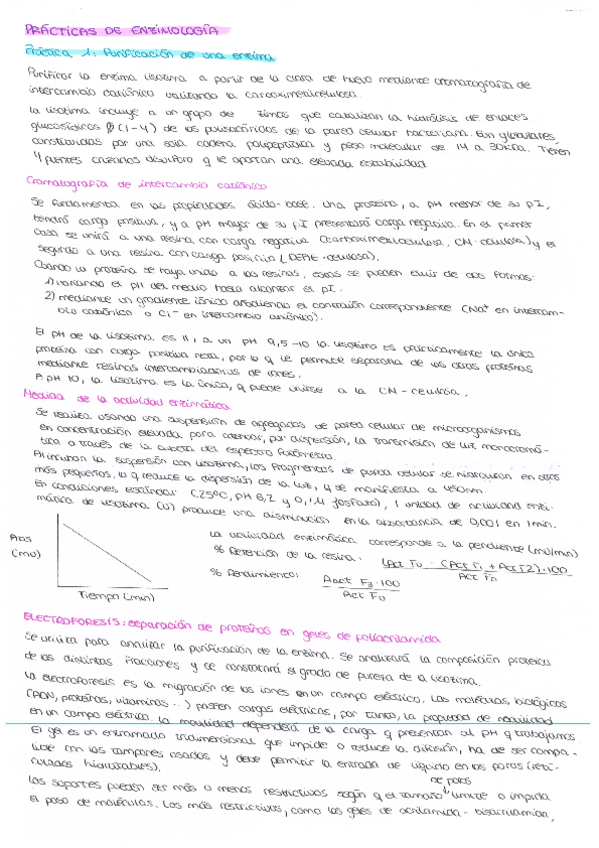 PRÁCTICAS DE ENZIMOLOGÍA
Práctica 1: Purificación de una enzima
Purificar la enzima lisozima a partir de la clara de huevo mediante cromatografía de
intercambio catiónico utilizando la carboximetilcelulosa.
La lisozima incluye a un grupo de zimas que catalizan la hidrólisis de enlaces
glucosídicos β (1-4) de los polisacáridos de la pared celular bacteriana. Son globulares,
constituidas por una sola cadena polipeptídica y peso molecular de 14 a 30kDa. Tienen
4 puentes cruzados disulfuro q le aportan una elevada estabilidad.
Cromatografía de intercambio catiónico
Se fundamenta en las propiedades ácido-base. Una proteína, a pH menor de su pI,
tendrá carga positiva, y a pH mayor de su pI presentará carga negativa. En el primer
caso se unirá a una resina con carga negativa (carboximetilcelulosa, CM-celulosa) y el
segundo a una resina con carga positiva (DEAE-celulosa).
Cuando la proteína se haya unido a las resinas, estas se pueden eluir de dos formas:
1) variando el pH del medio hasta alcanzar el pI.
2) mediante un gradiente iónico añadiendo el contraión correspondiente (Na⁺ en intercam-
bio catiónico o Cl⁻ en intercambio aniónico).
El pH de la lisozima es 11, a un pH 9,5-10 la lisozima es prácticamente la única
proteína con carga positiva neta, por lo q le permite separarla de las otras proteínas
mediante resinas intercambiadoras de iones.
A pH 10, la lisozima es la única, q puede unirse a la CM-celulosa.
Medida de la actividad enzimática
Se realiza usando una suspensión de agregados de pared celular de microorganismos
en concentración elevada para atenuar, por dispersión, la transmisión de luz monocromá-
tica a través de la cubeta del espectrofotómetro.
Al incubar la suspensión con lisozima, los fragmentos de pared celular se hidrolizan en otros
más pequeños, lo q reduce la dispersión de la luz, y se manifiesta a 450nm.
En condiciones estándar (25ºC, pH 6,2 y 0,1M fosfato), 1 unidad de actividad enzi-
mática de lisozima (U) produce una disminución en la absorbancia de 0,001 en 1min.
La actividad enzimática corresponde a la pendiente (mU/min)
Abs
(mU)
Tiempo (min)
% Retención de la resina: (Act F0 - (Act F1 + Act F2)·100
Act F0
% Rendimiento: Aact F3·100
Act F0
ELECTROFORESIS: separación de proteínas en geles de poliacrilamida
Se utiliza para analizar la purificación de la enzima. Se analizará la composición proteica
de las distintas fracciones y se constatará el grado de pureza de la lisozima.
La electroforesis es la migración de los iones en un campo eléctrico. Las moléculas biológicas
(ADN, proteínas, vitaminas...) poseen cargas eléctricas, por tanto, la propiedad de movilidad
en un campo eléctrico. La movilidad dependerá de la carga q presentan al pH q trabajamos
El gel es un entramado tridimensional que impide o reduce la difusión, ha de ser compa-
tible con los tampones usados y debe permitir la entrada de líquido en los poros (retí-
culados hidratables).
Los soportes pueden ser más o menos restrictivos según q el tamaño de poros limite o impida
el paso de moléculas. Los más restrictivos, como los geles de acrilamida-bisacrilamida,